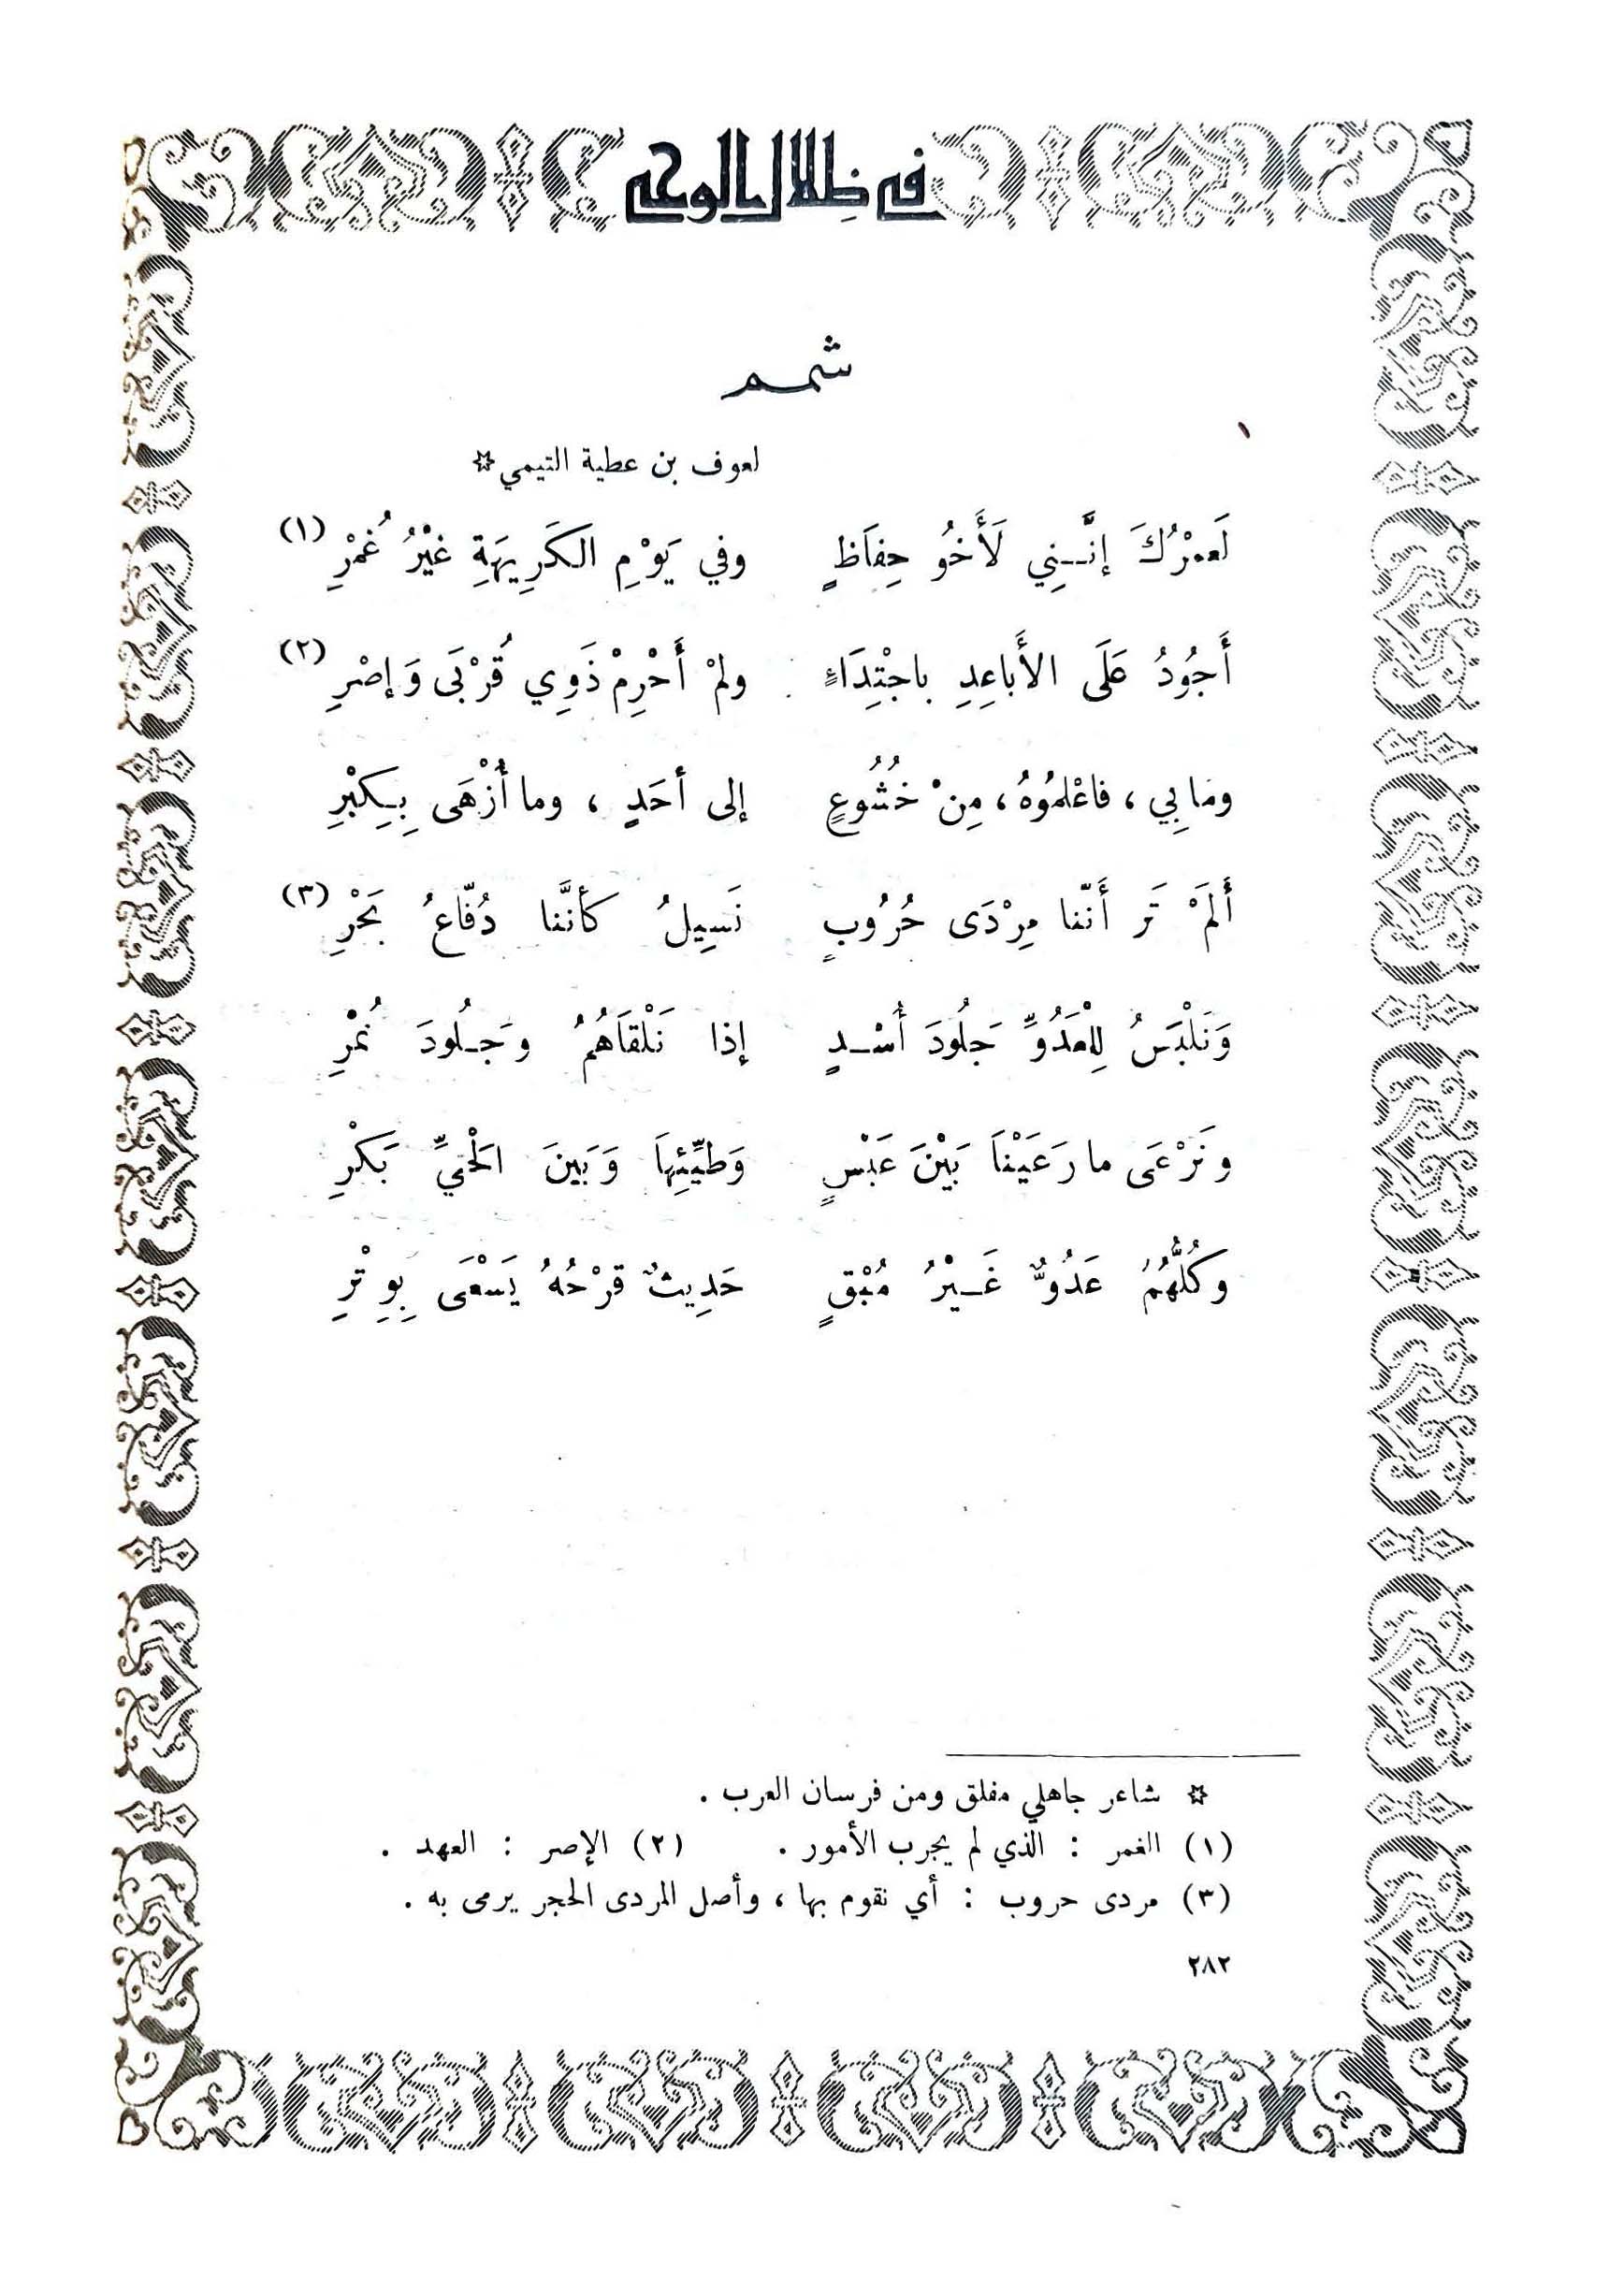 في ظلال الوعي
شمم
لعوف بن عطية التيمي ☆
لَعَمْرُكَ إنَّـنِي لَأَخُو حِفَاَظٍ وفي يَوْمِ الكَرِيهَةِ غَيْرُ غُمْرِ (١)
أَجُودُ عَلَى الأَباعِدِ باجْتِدَاءٍ ولمْ أَحْرِمْ ذَوِي قُرْبَى وَإصْرِ (٢)
ومَا بِي ، فاعْلمُوهُ ، مِنْ خُشُوعٍ إلى أحَدٍ ، وما أُزْهَى بِـكِبْرِ
أَلَمْ تَر أَنّنا مِرْدَى حُرُوبٍ نَسِيلُ كأنَّنا دُفّاعُ بَحْرِ (٣)
وَنَلْبَسُ لِلْعَدُوِّ جَلُودَ أُسْـدٍ إذا نَلْقَاهُمُ وجَـلُودَ نُمْرِ
ونَرْعَى ما رَعَيْنَا بَيْنَ عَبْسٍ وَطَيِّئِهاَ وَبَينَ الَحْيِّ بَكْرِ
وكُلُّهُمُ عَدُوٌّ غَـيْرُ مُبْقٍ حَدِيثٌ قرْحُهُ يَسْعَى بِوِتْرِ
☆ شاعر جاهلي مفلق ومن فرسان العرب .
(١) الغمر : الذي لم يجرب الأمور . (٢) الإصر : العهد .
(٣) مردى حروب : أي نقوم بها ، وأصل المردى الحجر يرمى به .
٢٨٢